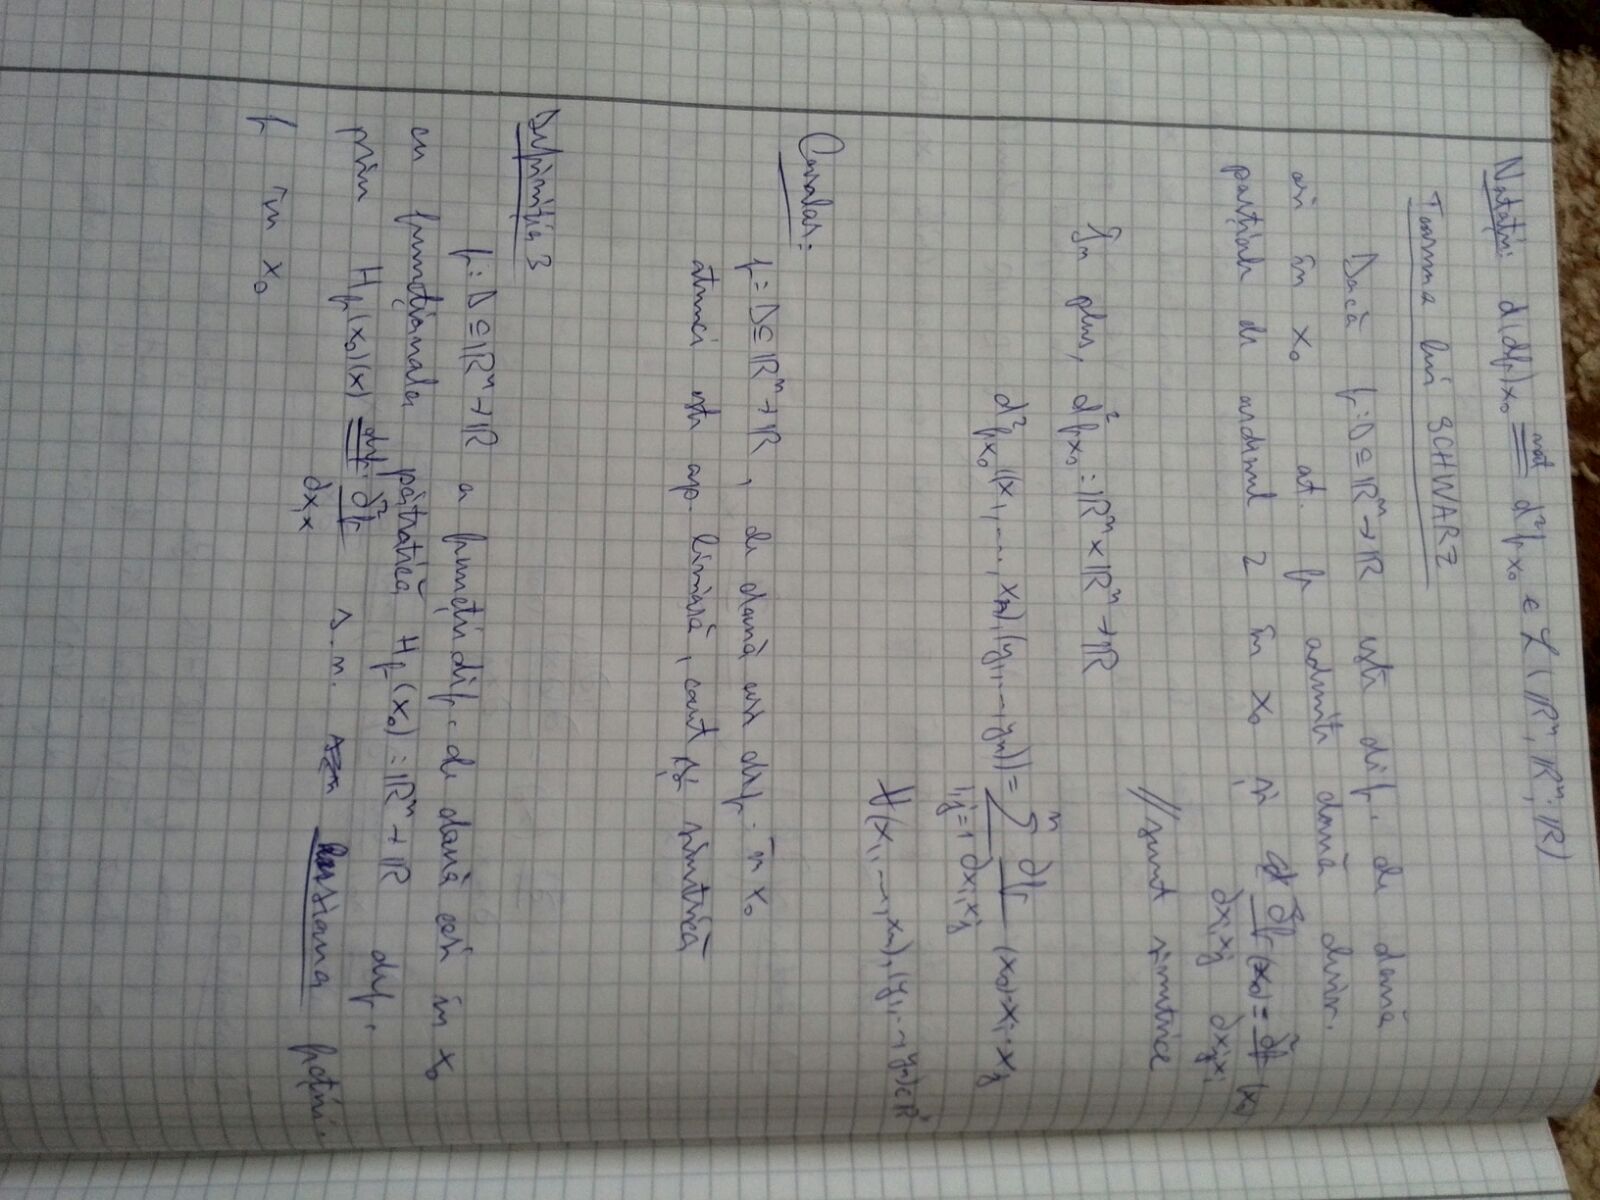 Notație: d(df)x₀ =not= d²fx₀ ∈ L(ℝⁿ, ℝⁿ; ℝ)
Teorema lui SCHWARZ
Dacă f: D ⊆ ℝⁿ → ℝ este dif. de două
ori în x₀ at. f admite două deriv.
parțiale de ordinul 2 în x₀ și ∂²f/∂xᵢxⱼ (x₀) = ∂²f/∂xⱼxᵢ (x₀)
// sunt simetrice
În plus, d²fx₀ : ℝⁿ × ℝⁿ → ℝ
d²fx₀((x₁, ..., xₙ), (y₁, ..., yₙ)) = Σⁿᵢ,ⱼ₌₁ ∂²f/∂xᵢxⱼ (x₀)·xᵢ·xⱼ
∀(x₁, ..., xₙ), (y₁, ..., yₙ) ∈ ℝⁿ
Corolar:
f: D ⊆ ℝⁿ → ℝ, de două ori dif. în x₀
atunci este ap. liniară, cont și simetrică
Definiția 3
f: D ⊆ ℝⁿ → ℝ a funcției dif. de două ori în x₀
cu funcționala pătratică H_f(x₀): ℝⁿ → ℝ dif.
prin H_f(x₀)(x) =def= ∂²f/∂x,x s.n. hessiana funcției
f în x₀